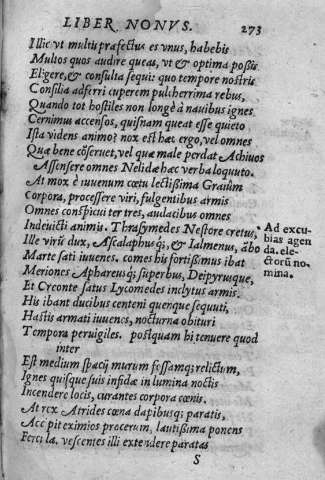 LIBER NONVS. 273
Illic vt multis præfectus es vnus, habebis
Multos quos audire queas, vt & optima possis
Eligere, & consulta sequi: quo tempore nostris
Consilia adferri cuperem pulcherrima rebus,
Quando tot hostiles non longè à nauibus ignes
Cernimus accensos, quisnam queat esse quieto
Ista videns animo? nox est hæc ergo, vel omnes
Quæ bene cõseruet, vel quæ male perdat Achiuos
Assensere omnes Nelidæ hæc verba loquuto.
At mox è iuuenum cœtu lectissima Graium
Corpora, processere viri, fulgentibus armis
Omnes conspicui ter tres, audacibus omnes
Indeuicti animis. Thrasymedes Nestore cretus,
Ille virũ dux, Ascalaphusq;, & Ialmenus, ãbo
Marte sati iuuenes. comes his fortissimus ibat
Meriones Aphareusq; superbus, Deipyrusque,
Et Creonte satus Lycomedes inclytus armis.
His ibant ducibus centeni quenque sequuti,
Hastis armati iuuenes, nocturna obituri
Tempora peruigiles. postquam hi tenuere quod
inter
Est medium spacij murum fossamq; relictum,
Ignes quisque suis infidæ in lumina noctis
Incendere locis, curantes corpora cœnis.
At rex Atrides cœna dapibusq; paratis,
Accipit eximios procerum, lautissima ponens
Fercla. vescentes illi extendere paratas
S
Ad excu-
bias agen
da. ele-
ctorũ no-
mina.